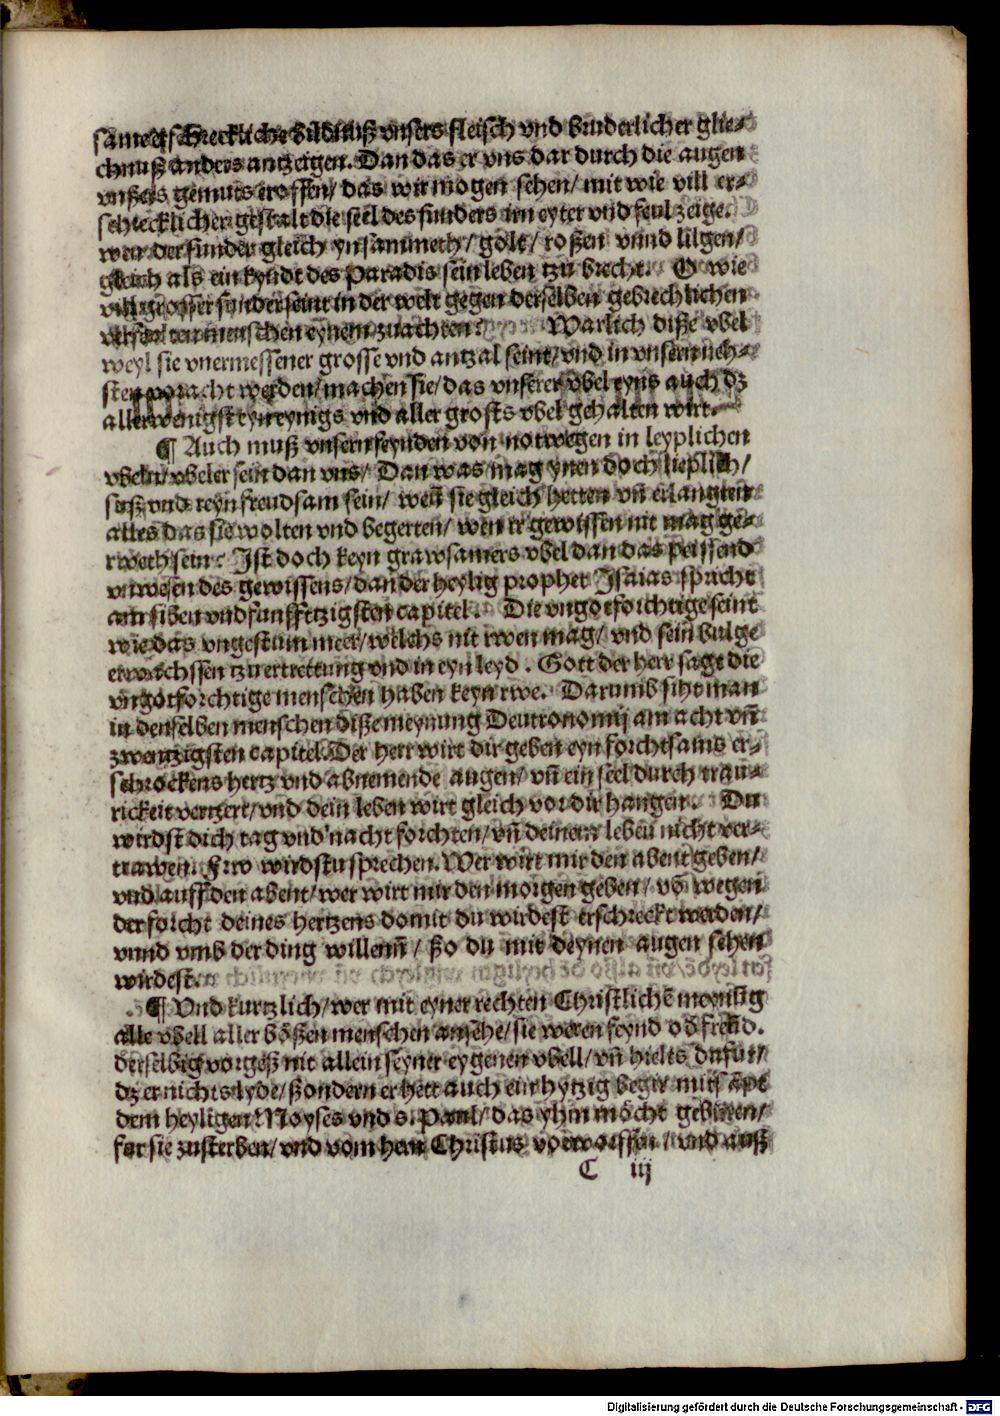 same erschreckliche bildnuß vnsers fleisch vnd bruderlicher glie⸗
chnuß anders antzeigen. Dan das er vns dar durch die augen
vnßers gemuts eroffen/ das wir mogen sehen/ mit wie vill er⸗
schrecklicher gestalt die seel des sunders im eyter vnd feul zeige.
wen der sunder gleich yn sammeth/ golt/ roßen vnnd lilgen/
gleich als ein kyndt des Paradis sein leben tzu brecht. O wie
vill grosser sunder seint in der welt gegen derselben gebrechlichen
menschen eynem zuachten? Warlich diße vbel
weyl sie vnermessener grosse vnd antzal seint/ vnd in vnsern neh⸗
sten voracht werden/ machen sie/ das vnserer vbel eyns auch dz
allerwenigst eyn eynigs vnd aller grosts vbel gehalten wirt.
¶ Auch muß vnsern feynden von notwegen in leyplichen
vbeln/ vbeler sein dan vns/ Dan was mag ynen doch lieplich/
suß vnd reyn freudsam sein/ weñ sie gleich hetten vñ erlangten
alles das sie wolten vnd begerten/ wen ir gewissen nit mag ge⸗
rweth sein? Ist doch keyn grawsamers vbel dan das peissend
vnwesen des gewissens/ dan der heylig prophet Isaias spricht
am siben vnd funfftzigsten capitel. Die vngotforchtige seint
wie das vngestum meer/ welchs nit rwen mag/ vnd sein bulge
erwachssen tzu ertrettung vnd in eyn leyd. Gott der herr sagt die
vngotforchtige menschen haben keyn rwe. Darumb siht man
in denselben menschen diße meynung Deutronomij am acht vñ
zwentzigsten capitel. Der herr wirt dir geben eyn forchtsams er⸗
schrockens hertz vnd abnemende augen/ vñ ein seel durch trau⸗
rickeit vertzert/ vnd dein leben wirt gleich vor dir hangen. Du
wirdst dich tag vnd nacht forchten/ vñ deinem leben nicht ver⸗
trawen. Frw wirdstu sprechen. Wer wirt mir den abent geben/
vnd auff den abent/ wer wirt mir den morgen geben/ võ wegen
der forcht deines hertzens domit du wirdest erschreckt werden/
vnnd vmb der ding willenn/ ßo du mit deynen augen sehen
wirdest.
¶ Vnd kurtzlich/ wer mit eyner rechten Christlichē meynũg
alle vbell aller bößen menschen ansehe/ sie weren feynd od freũd.
derselbig vorgeß nit allein seyner eygenen vbell/ vñ hielts dafur/
dz er nichts lyde/ ßondern er hett auch ein hytzig begir mitsāpt
dem heyligen Moyses vnd s. Paul/ das yhm möcht geburen/
for sie zusterben/ vnd vom hern Christus vorworffen/ vnd auß
C iij
Digitalisierung gefördert durch die Deutsche Forschungsgemeinschaft - DFG